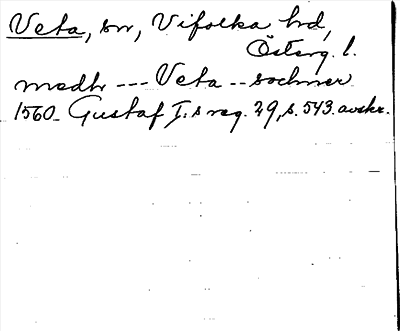 Veta, sn, Vifolka hd,
Österg. l.
medh --- Veta -- sochner
1560 Gustaf I.s reg. 29, s. 543. avskr.